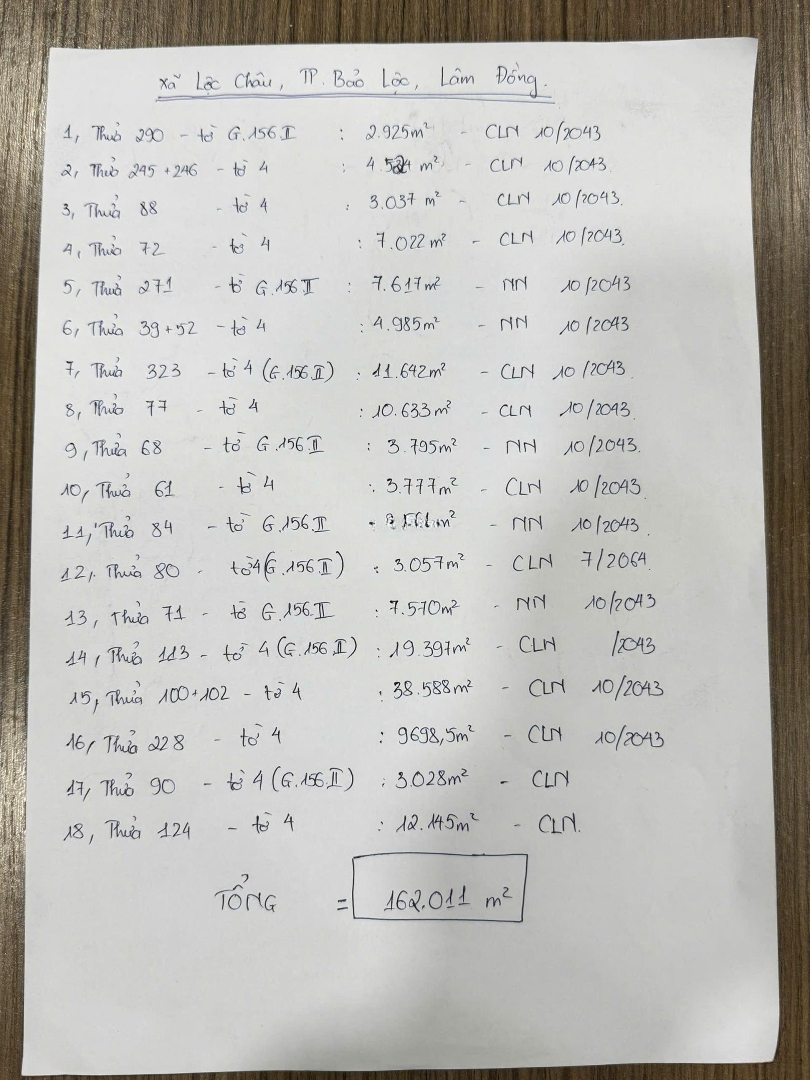 Xã Lộc Châu, TP. Bảo Lộc, Lâm Đồng.
1, Thửa 290 - tờ G.156 II : 2.925m² - CLN 10/2043
2, Thửa 245+246 - tờ 4 : m² - CLN 10/2043.
3, Thửa 88 - tờ 4 : 3.037 m² - CLN 10/2043.
4, Thửa 72 - tờ 4 : 7.022m² - CLN 10/2043.
5, Thửa 271 - tờ G.156 II : 7.617m² - NN 10/2043
6, Thửa 39+52 - tờ 4 : 4.985m² - NN 10/2043
7, Thửa 323 - tờ 4 (G.156.II) : 11.642m² - CLN 10/2043.
8, Thửa 77 - tờ 4 : 10.633m² - CLN 10/2043.
9, Thửa 68 - tờ G.156.II : 3.795m² - NN 10/2043.
10, Thửa 61 - tờ 4 : 3.777m² - CLN 10/2043.
11, Thửa 84 - tờ G.156.II m² - NN 10/2043.
12, Thửa 80 - tờ 4 (G.156.II) : 3.057m² - CLN 7/2064.
13, Thửa 71 - tờ G.156.II : 7.570m² - NN 10/2043
14, Thửa 113 - tờ 4 (G.156.II) : 19.397m² - CLN /2043
15, Thửa 100+102 - tờ 4 : 38.588m² - CLN 10/2043
16, Thửa 228 - tờ 4 : 9698,5m² - CLN 10/2043
17, Thửa 90 - tờ 4 (G.156.II) : 3.028m² - CLN
18, Thửa 124 - tờ 4 : 12.145m² - CLN.
TỔNG = 162.011 m²